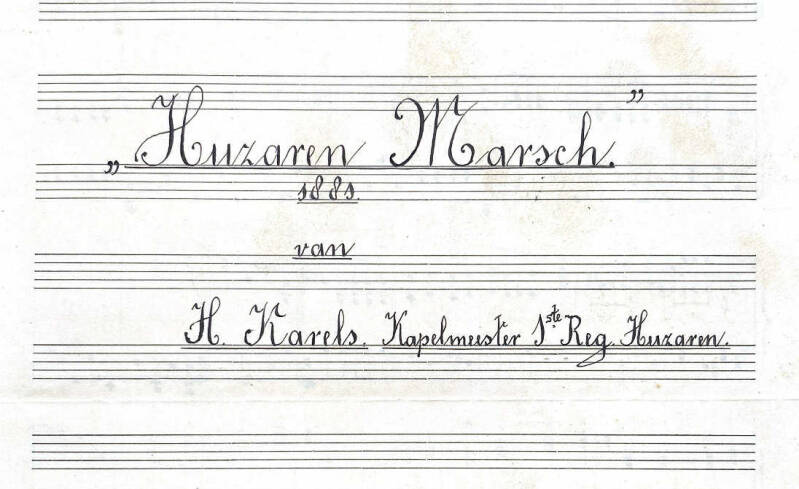 „Huzaren Marsch.”
1881.
van
H. Karels. Kapelmeester 1ste Reg. Huzaren.